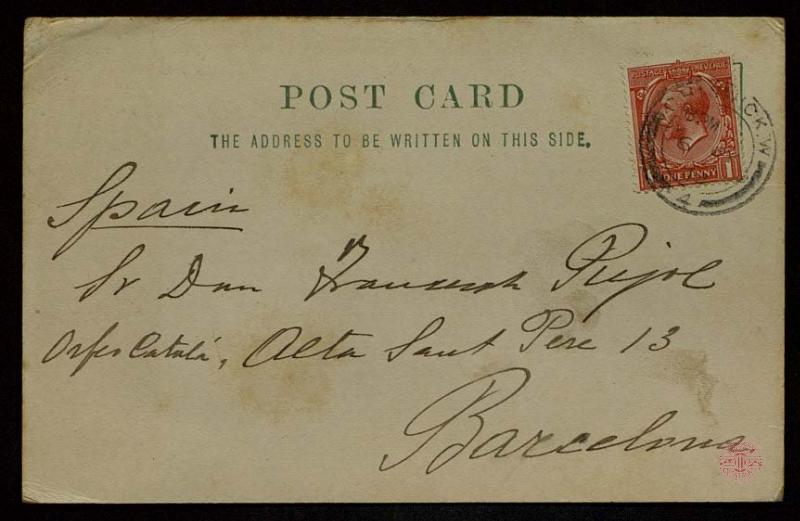 POST CARD
THE ADDRESS TO BE WRITTEN ON THIS SIDE.
POSTAGE REVENUE
ONE PENNY
Spain
Sr Don Francesch Pujol
Orfeo Catalá, Alta Sant Pere 13
Barcelona